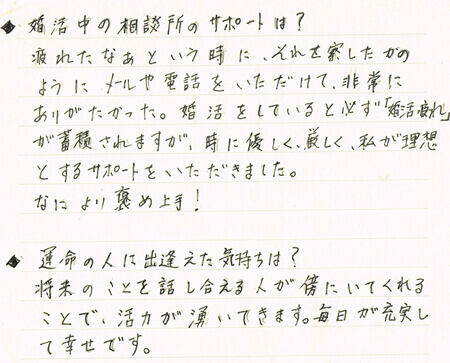 ◆ 婚活中の相談所のサポートは？
疲れたなぁという時に、それを察したかの
ようにメールや電話をいただけて、非常に
ありがたかった。婚活をしていると必ず「婚活疲れ」
が蓄積されますが、時に優しく、厳しく、私が理想
とするサポートをいただきました。
なにより褒め上手！
◆ 運命の人に出逢えた気持ちは？
将来のことを話し合える人が傍にいてくれる
ことで、活力が湧いてきます。毎日が充実し
て幸せです。